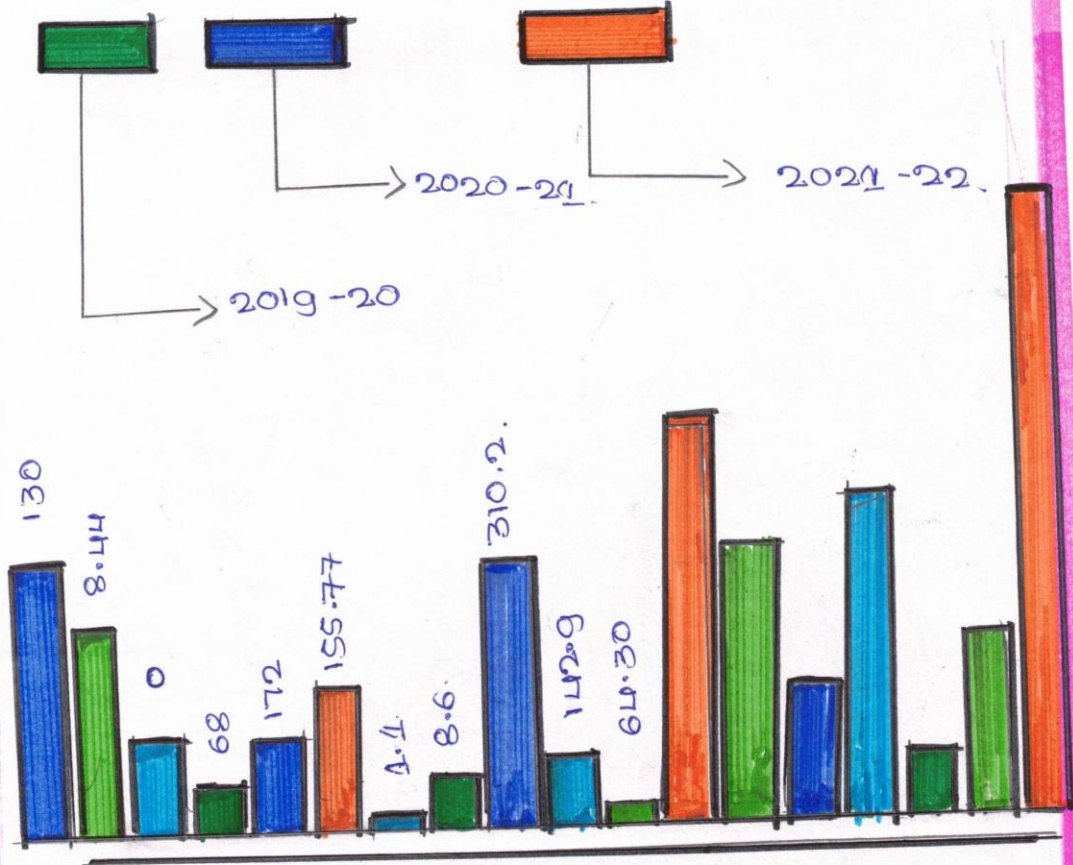 2020-21.
2021-22.
2019-20
130
8.44
0
68
172
155.77
1.1
8.6.
310.2.
142.9
64.30